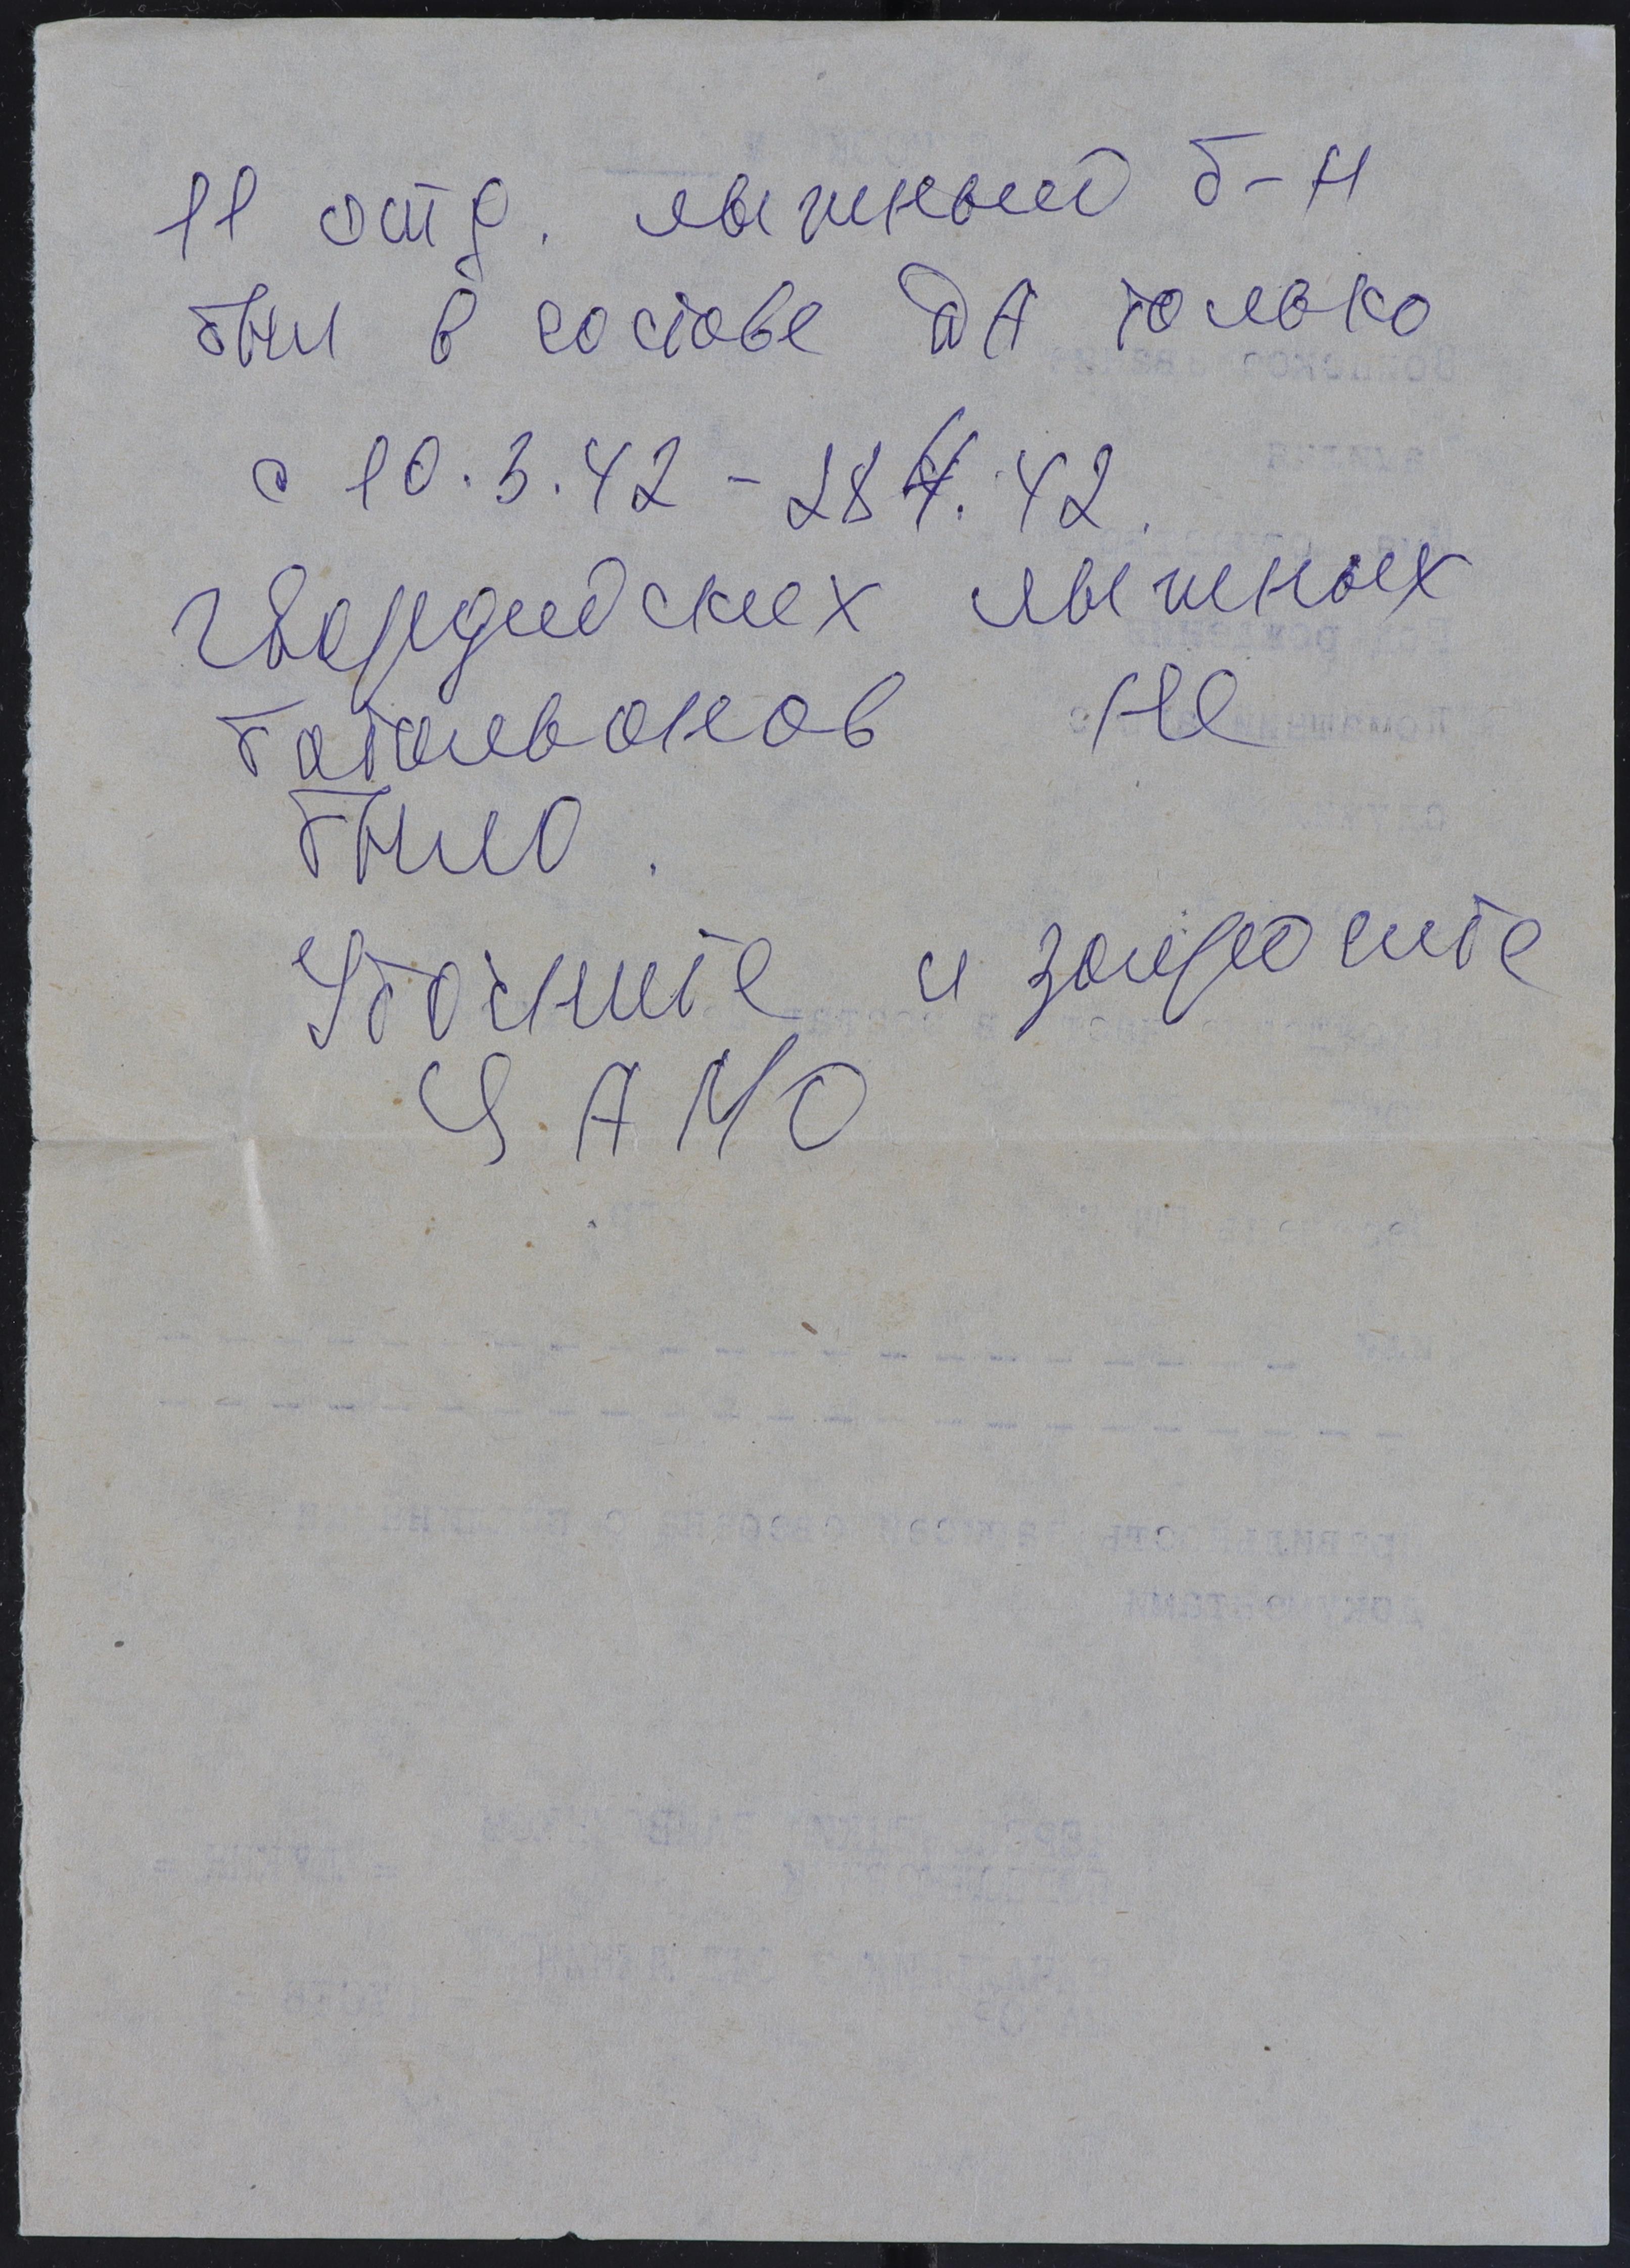 11 отд. лыжный б-н
был в составе ДА только
с 10.3.42 - 28 4. 42.
гвардейских лыжных
батальонов не
было.
Уточните и запросите
ЦАМО